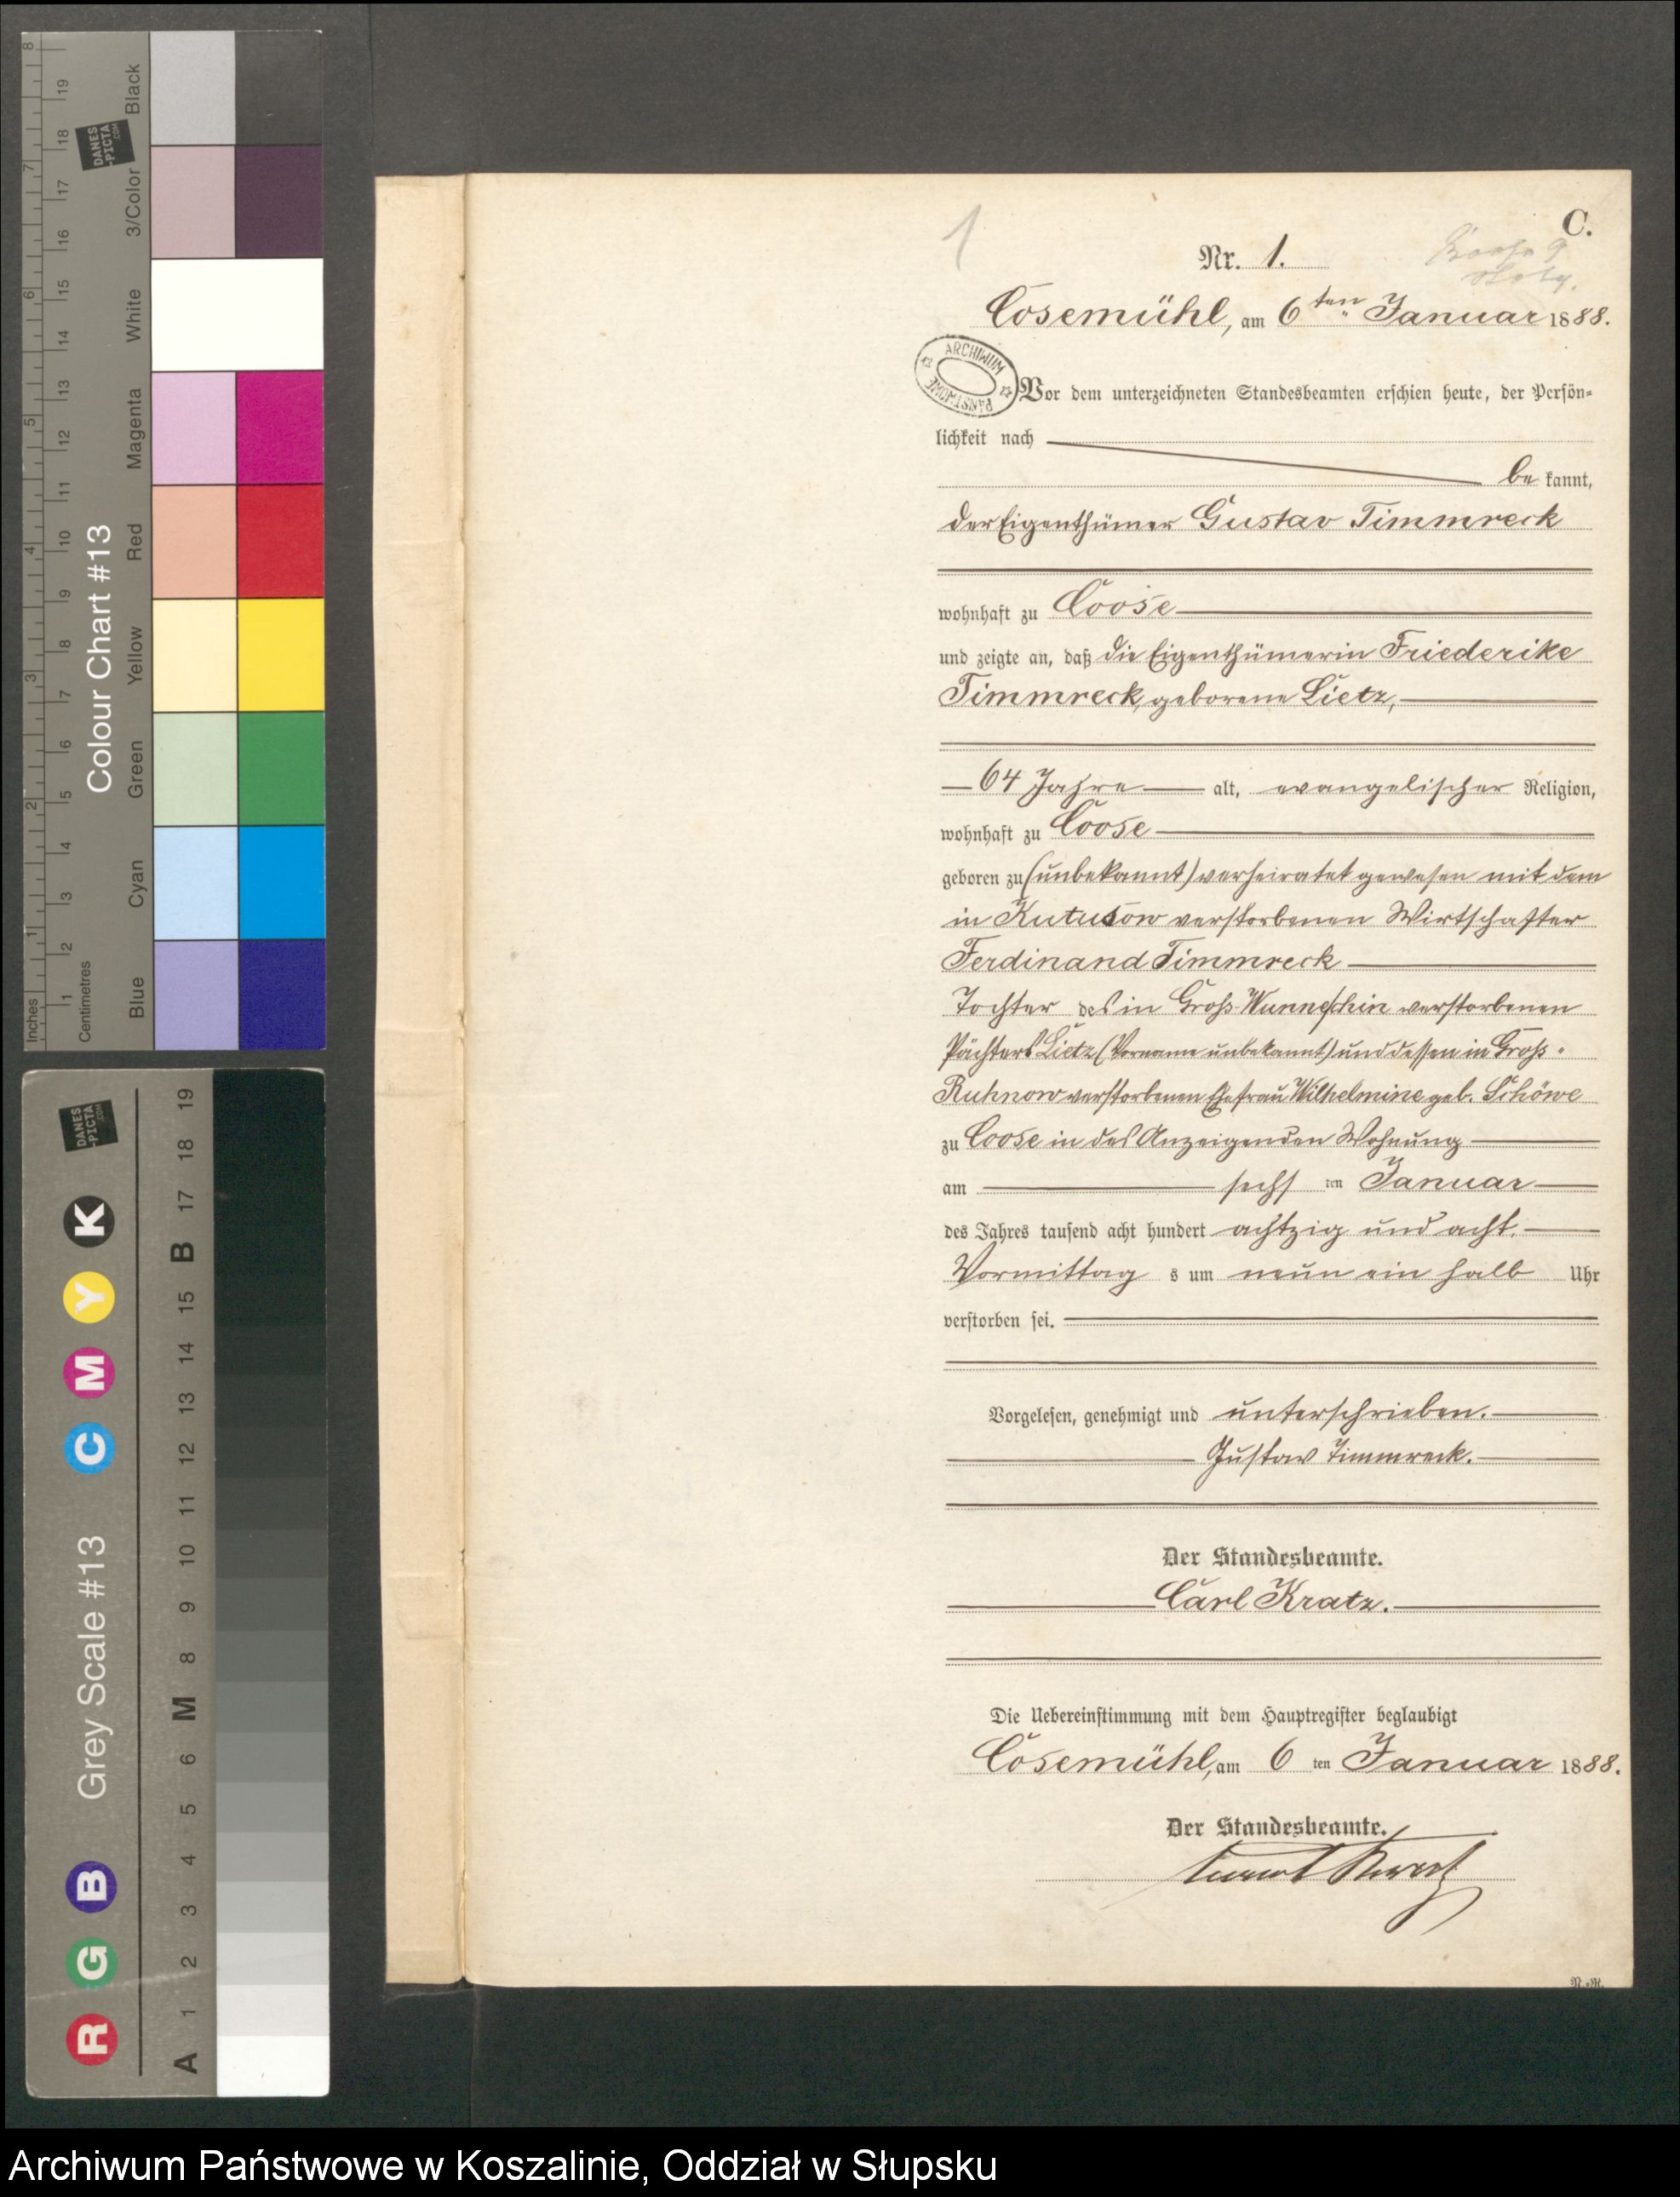 8
19
Black
18
DANES
-PICTA
.COM
7
17
3/Color
16
6
15
White
14
13
5
12
Magenta
11
Colour Chart #13
4
10
Red
9
8
Yellow
3
7
6
Green
2
5
4
Cyan
3
1
2
1
Inches
Centimetres
Blue
DANES
-PICTA
.COM
19
18
17
K
B
Y
15
14
M
13
C
12
11
Grey Scale #13
10
9
8
M
6
5
4
B
3
G
2
1
R
A
1
C.
Nr. 1.
Cosemühl, am 6ten Januar 1888.
ARCHIWUM
PAŃSTWOWE
Vor dem unterzeichneten Standesbeamten erschien heute, der Persön-
lichkeit nach
be kannt,
der Eigenthümer Gustav Timmreck
wohnhaft zu Coose
und zeigte an, daß die Eigenthümerin Friederike
Timmreck, geborene Lietz,
64 Jahre alt, evangelischer Religion,
wohnhaft zu Coose
geboren zu (unbekannt) verheiratet gewesen mit dem
in Kutusow verstorbenen Wirtschafter
Ferdinand Timmreck
Tochter des in Groß-Wunneschin verstorbenen
Pächters Lietz (Vorname unbekannt) und dessen in Groß-
Ruhnow verstorbenen Ehefrau Wilhelmine geb. Schöwe
zu Coose in des Anzeigenden Wohnung
am sechs ten Januar
des Jahres tausend acht hundert achtzig und acht.
Vormittag s um neun ein halb Uhr
verstorben sei.
Vorgelesen, genehmigt und unterschrieben.
Gustav Timmreck.
Der Standesbeamte.
Carl Kratz.
Die Uebereinstimmung mit dem Hauptregister beglaubigt
Cosemühl, am 6 ten Januar 1888.
Der Standesbeamte.
Archiwum Państwowe w Koszalinie, Oddział w Słupsku